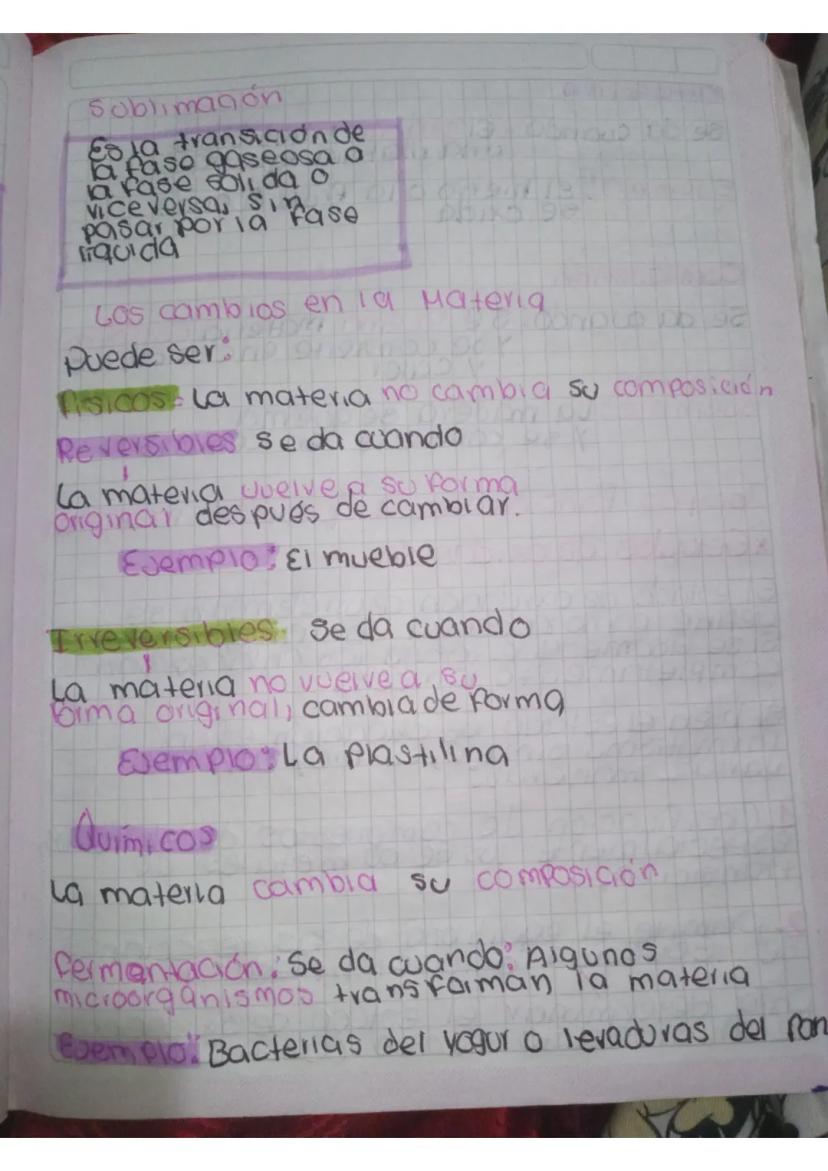 Sublimación
Es la transición de
la fase gaseosa a
la fase solida o
viceversa, sin
pasar por la fase
liquida
Los cambios en la Materia
Puede ser:
Fisicos: La materia no cambia su composición
Reversibles se da cuando
La materia vuelve a su forma
original después de cambiar.
Ejemplo: El mueble
Irreversibles. Se da cuando
La materia no vuelve a su
forma original, cambia de forma
Ejemplo: La Plastilina
Químicos
La materia cambia su composición
Fermentación: Se da cuando: Algunos
microorganismos transforman la materia
Ejemplo: Bacterias del yogur o levaduras del Pan